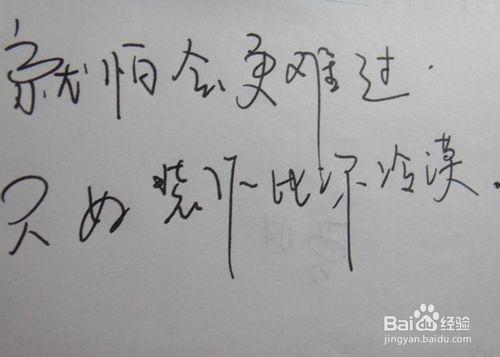 就怕会更难过.
只如装作比你冷漠.
Baidu经验
jingyan.baidu.com